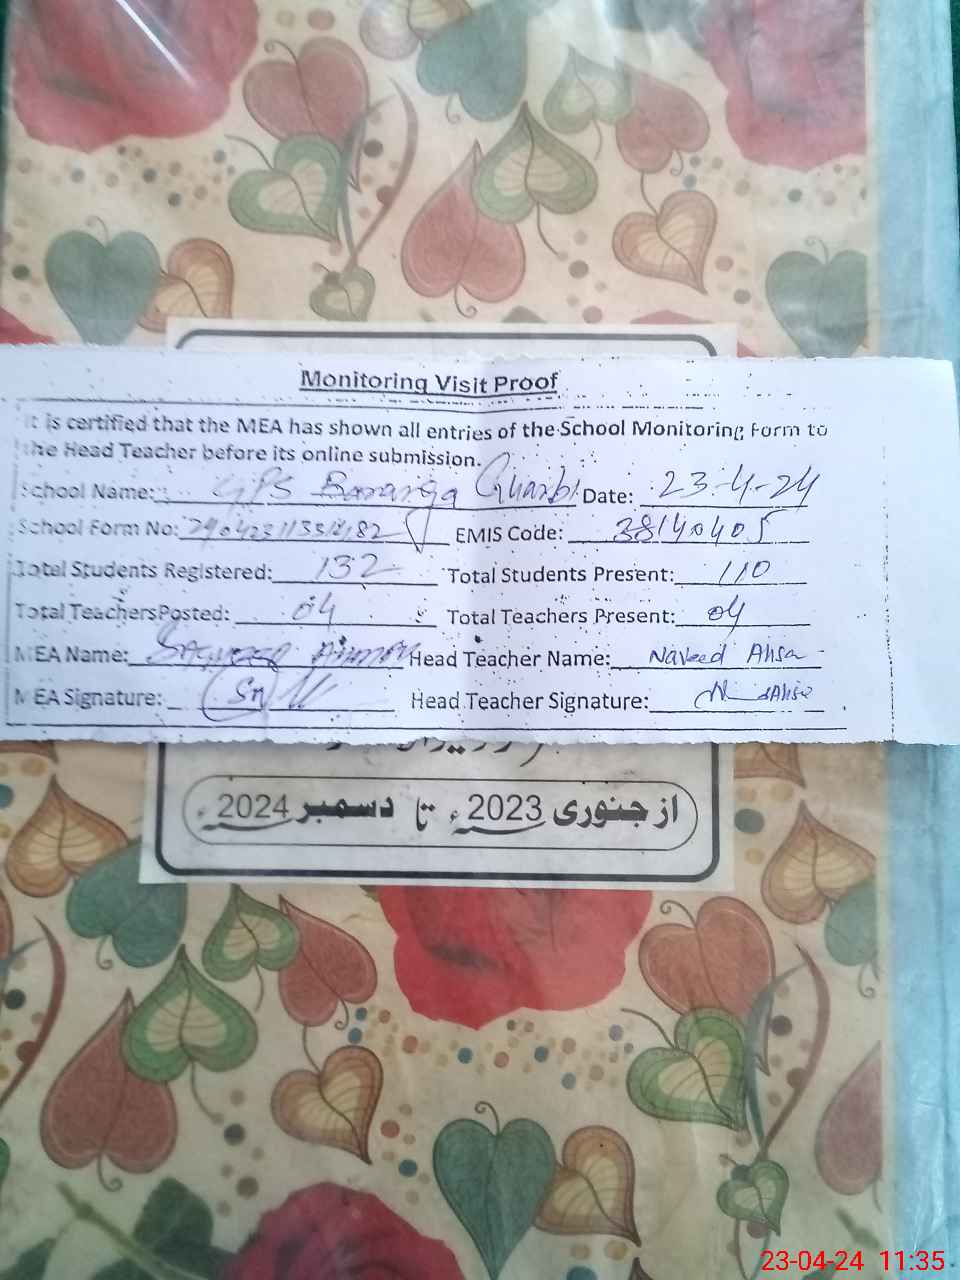 Monitoring Visit Proof
It is certified that the MEA has shown all entries of the School Monitoring Form to
the Head Teacher before its online submission.
School Name: GPS Gharbi Date: 23-4-24
School Form No: EMIS Code: 38140405
Total Students Registered: 132 Total Students Present: 110
Total TeachersPosted: 04 Total Teachers Present: 04
MEA Name: Head Teacher Name: Naveed Ahsan
MEA Signature: Head Teacher Signature:
از جنوری 2023ء تا دسمبر 2024ء
23-04-24 11:35